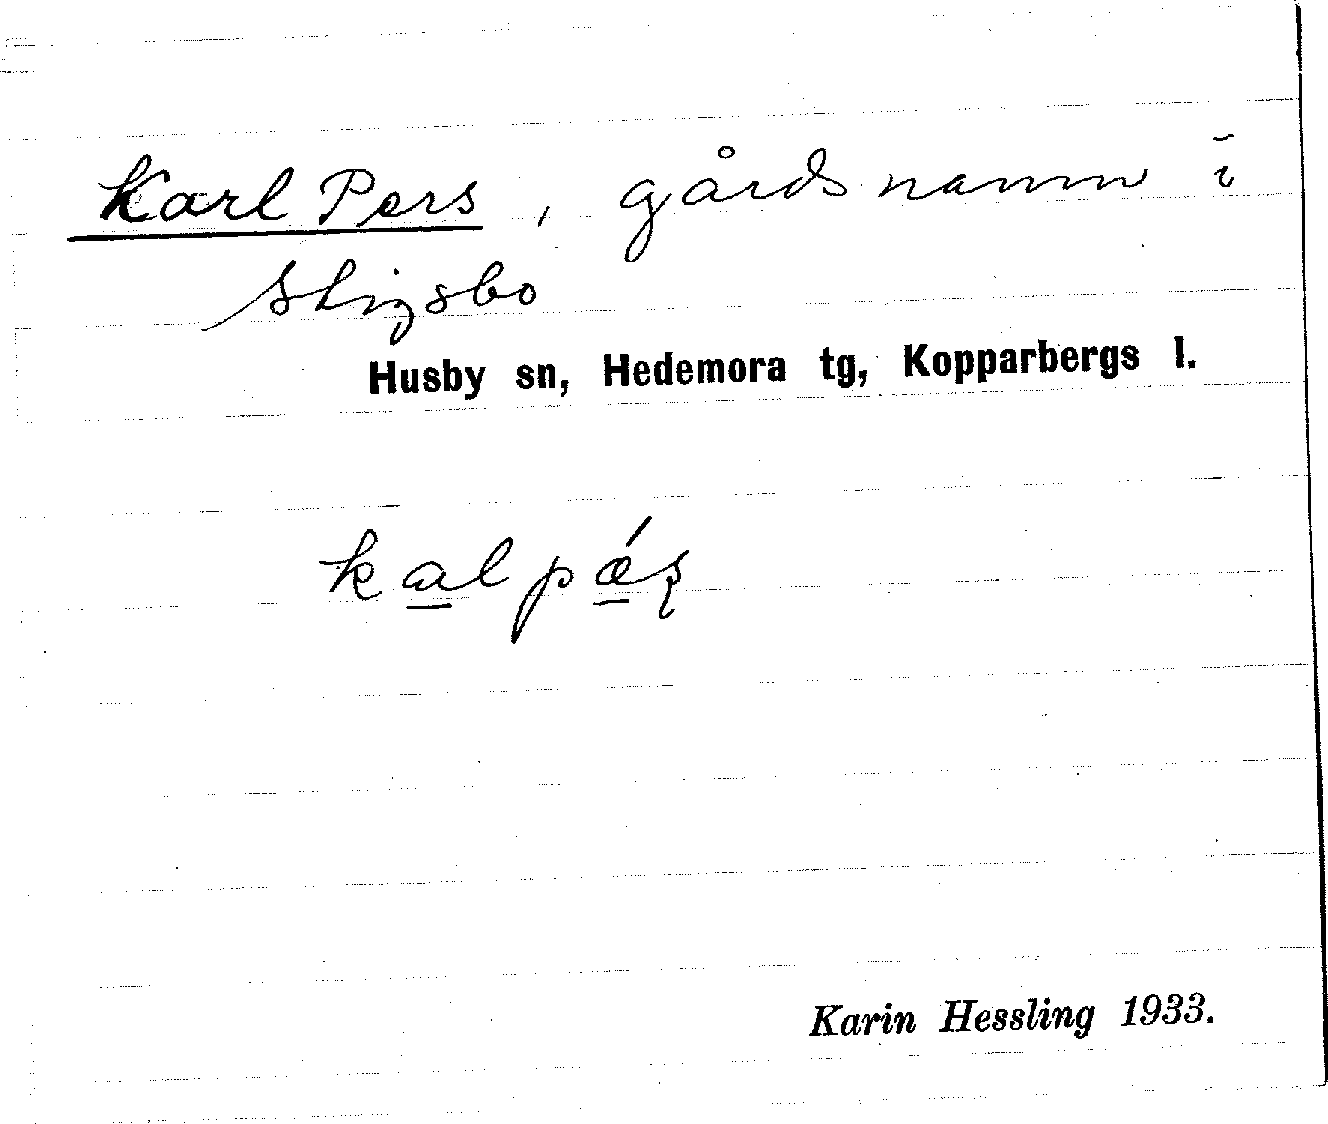 Karl Pers, gårdsnamn i
Stigsbo
Husby sn, Hedemora tg, Kopparbergs l.
kalpǽʂ
Karin Hessling 1933.